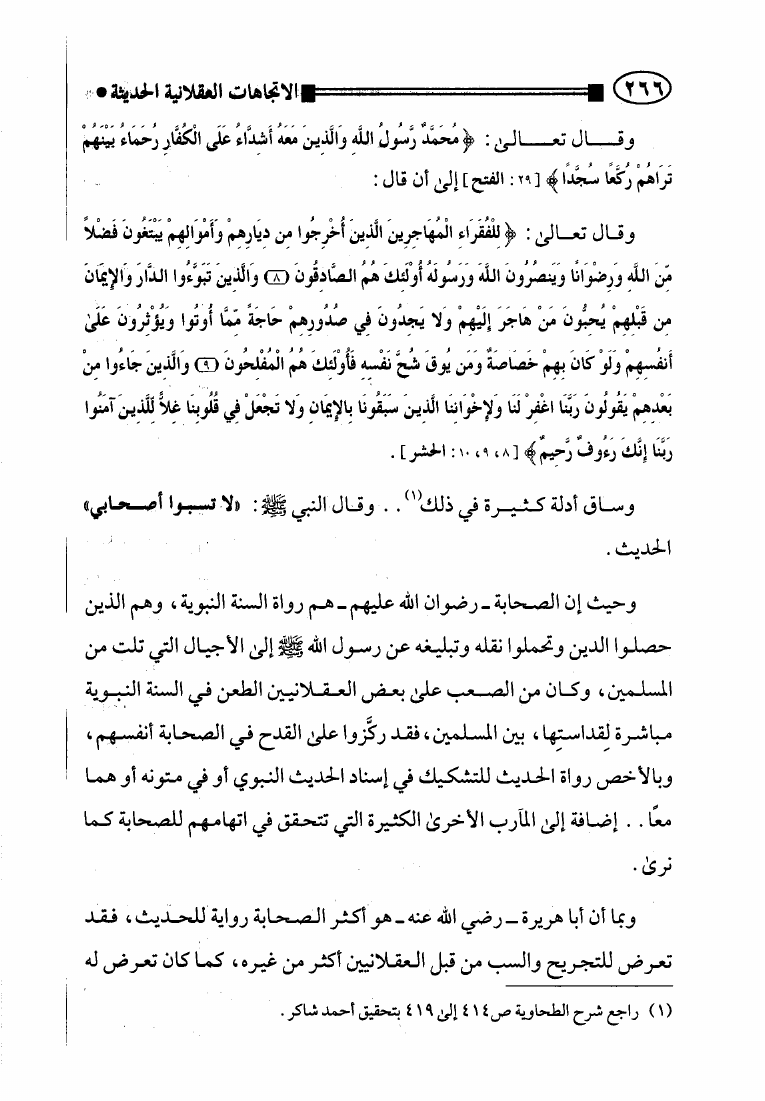 ٢٦٦ الاتجاهات العقلانية الحديثة
وقـــال تعـــالى: ﴿ مُحَمَّدٌ رَّسُولُ اللَّهِ وَالَّذِينَ مَعَهُ أَشِدَّاءُ عَلَى الْكُفَّارِ رُحَمَاءُ بَيْنَهُمْ
تَرَاهُمْ رُكَّعًا سُجَّدًا ﴾ [٢٩: الفتح] إلى أن قال:
وقال تعالى: ﴿ لِلْفُقَرَاءِ الْمُهَاجِرِينَ الَّذِينَ أُخْرِجُوا مِن دِيَارِهِمْ وَأَمْوَالِهِمْ يَبْتَغُونَ فَضْلاً
مِّنَ اللَّهِ وَرِضْوَانًا وَيَنصُرُونَ اللَّهَ وَرَسُولَهُ أُوْلَئِكَ هُمُ الصَّادِقُونَ ﴿٨﴾ وَالَّذِينَ تَبَوَّءُوا الدَّارَ وَالإِيمَانَ
مِن قَبْلِهِمْ يُحِبُّونَ مَنْ هَاجَرَ إِلَيْهِمْ وَلا يَجِدُونَ فِي صُدُورِهِمْ حَاجَةً مِّمَّا أُوتُوا وَيُؤْثِرُونَ عَلَىٰ
أَنفُسِهِمْ وَلَوْ كَانَ بِهِمْ خَصَاصَةٌ وَمَن يُوقَ شُحَّ نَفْسِهِ فَأُوْلَئِكَ هُمُ الْمُفْلِحُونَ ﴿٩﴾ وَالَّذِينَ جَاءُوا مِنْ
بَعْدِهِمْ يَقُولُونَ رَبَّنَا اغْفِرْ لَنَا وَلإِخْوَانِنَا الَّذِينَ سَبَقُونَا بِالإِيمَانِ وَلا تَجْعَلْ فِي قُلُوبِنَا غِلاًّ لِّلَّذِينَ آمَنُوا
رَبَّنَا إِنَّكَ رَءُوفٌ رَّحِيمٌ﴾ [٨، ٩، ١٠: الحشر].
وساق أدلة كثيرة في ذلك(١).. وقال النبي ﷺ: «لا تسبوا أصحابي»
الحديث.
وحيث إن الصحابة ـ رضوان الله عليهم ـ هم رواة السنة النبوية، وهم الذين
حصلوا الدين وتحملوا نقله وتبليغه عن رسول الله ﷺ إلى الأجيال التي تلت من
المسلمين، وكان من الصعب على بعض العقلانيين الطعن في السنة النبوية
مباشرة لِقداستِها، بين المسلمين، فقد ركَّزوا على القدح في الصحابة أنفسهم،
وبالأخص رواة الحديث للتشكيك في إسناد الحديث النبوي أو في متونه أو هما
معًا.. إضافة إلى المآرب الأخرى الكثيرة التي تتحقق في اتهامهم للصحابة كما
نرى.
وبما أن أبا هريرة ـ رضي الله عنه ـ هو أكثر الصحابة رواية للحديث، فقد
تعرض للتجريح والسب من قبل العقلانيين أكثر من غيره، كما كان تعرض له
(١) راجع شرح الطحاوية ص٤١٤ إلى ٤١٩ بتحقيق أحمد شاكر.